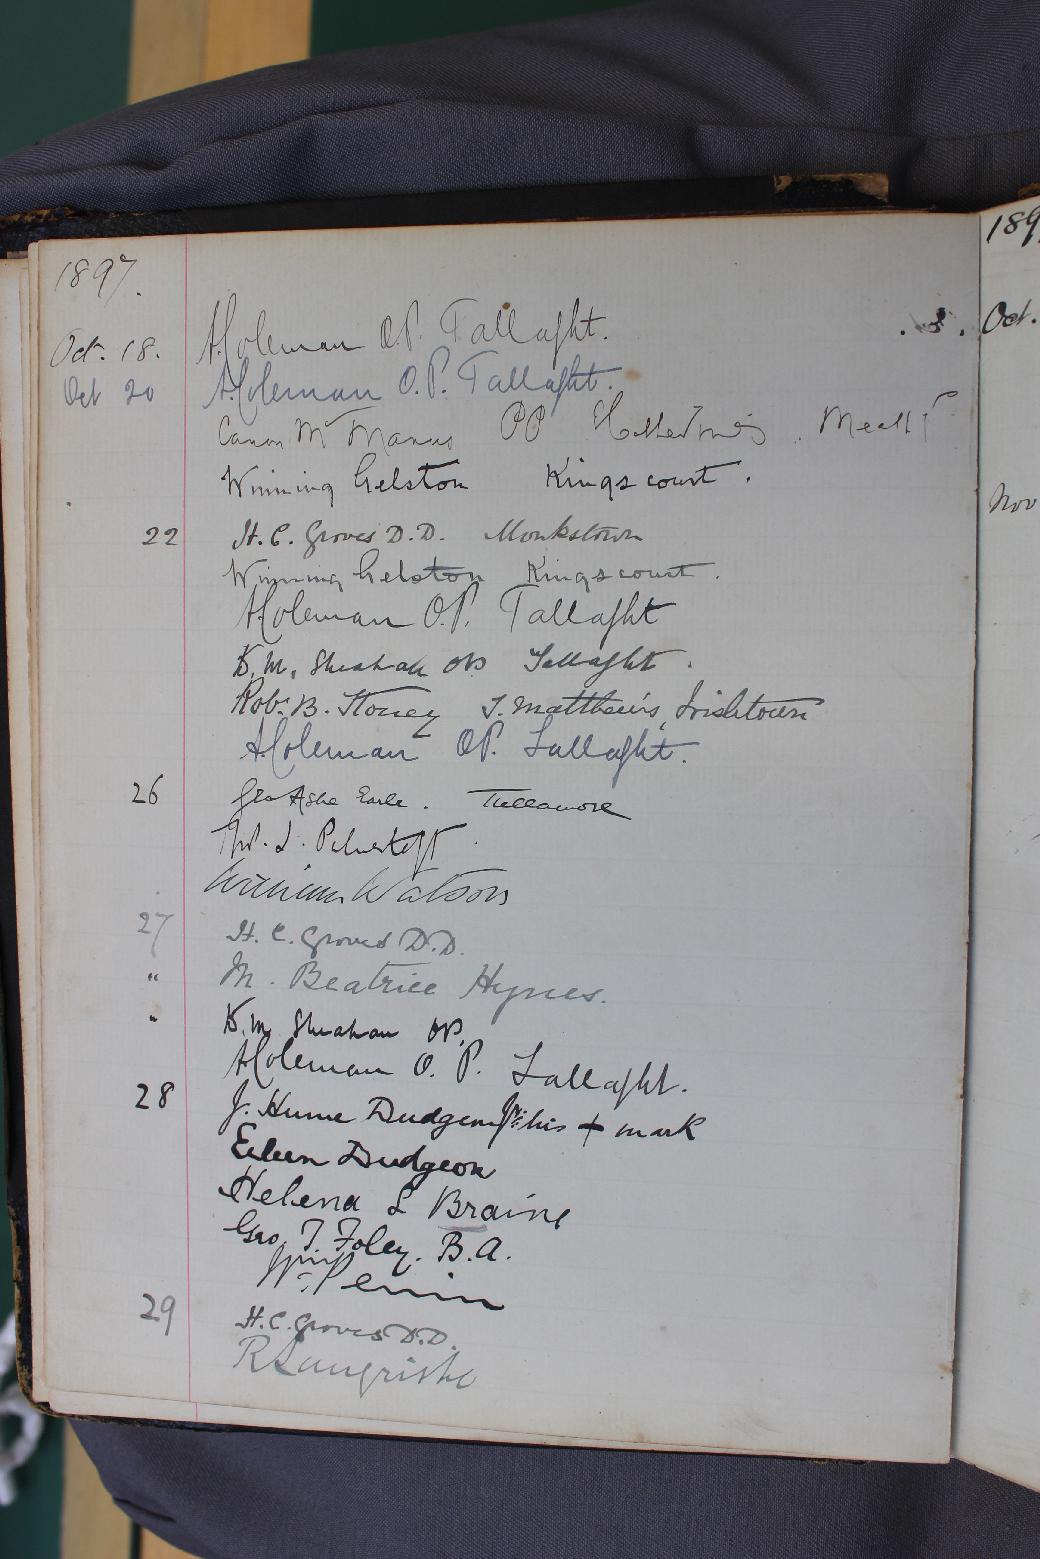 1897.
Oct. 18. A. Coleman O.P. Tallaght.
Oct 20 A. Coleman O.P. Tallaght.
Canon McManus PP Meath
Winning Gelston Kingscourt.
22 H. C. Groves D.D. Monkstown
Winning Gelston Kingscourt.
A. Coleman O.P. Tallaght
K. M. Sheahan OP Tallaght.
Rob. B. Stoney S. Matthew's, Irishtown
A. Coleman OP. Tallaght.
26 Geo Ashe Earle. Tullamore
William Watson
27 H. C. Groves D.D.
" M. Beatrice Hynes.
" K. M. Sheahan OP.
A. Coleman O. P. Tallaght.
28 J. Hume Dudgeon Jr: his + mark
Eileen Dudgeon
Helena L Braine
Geo. T. Foley. B.A.
Wm. Perrin
29 H. C. Groves D.D.
R Langrishe
189
Oct.
Nov